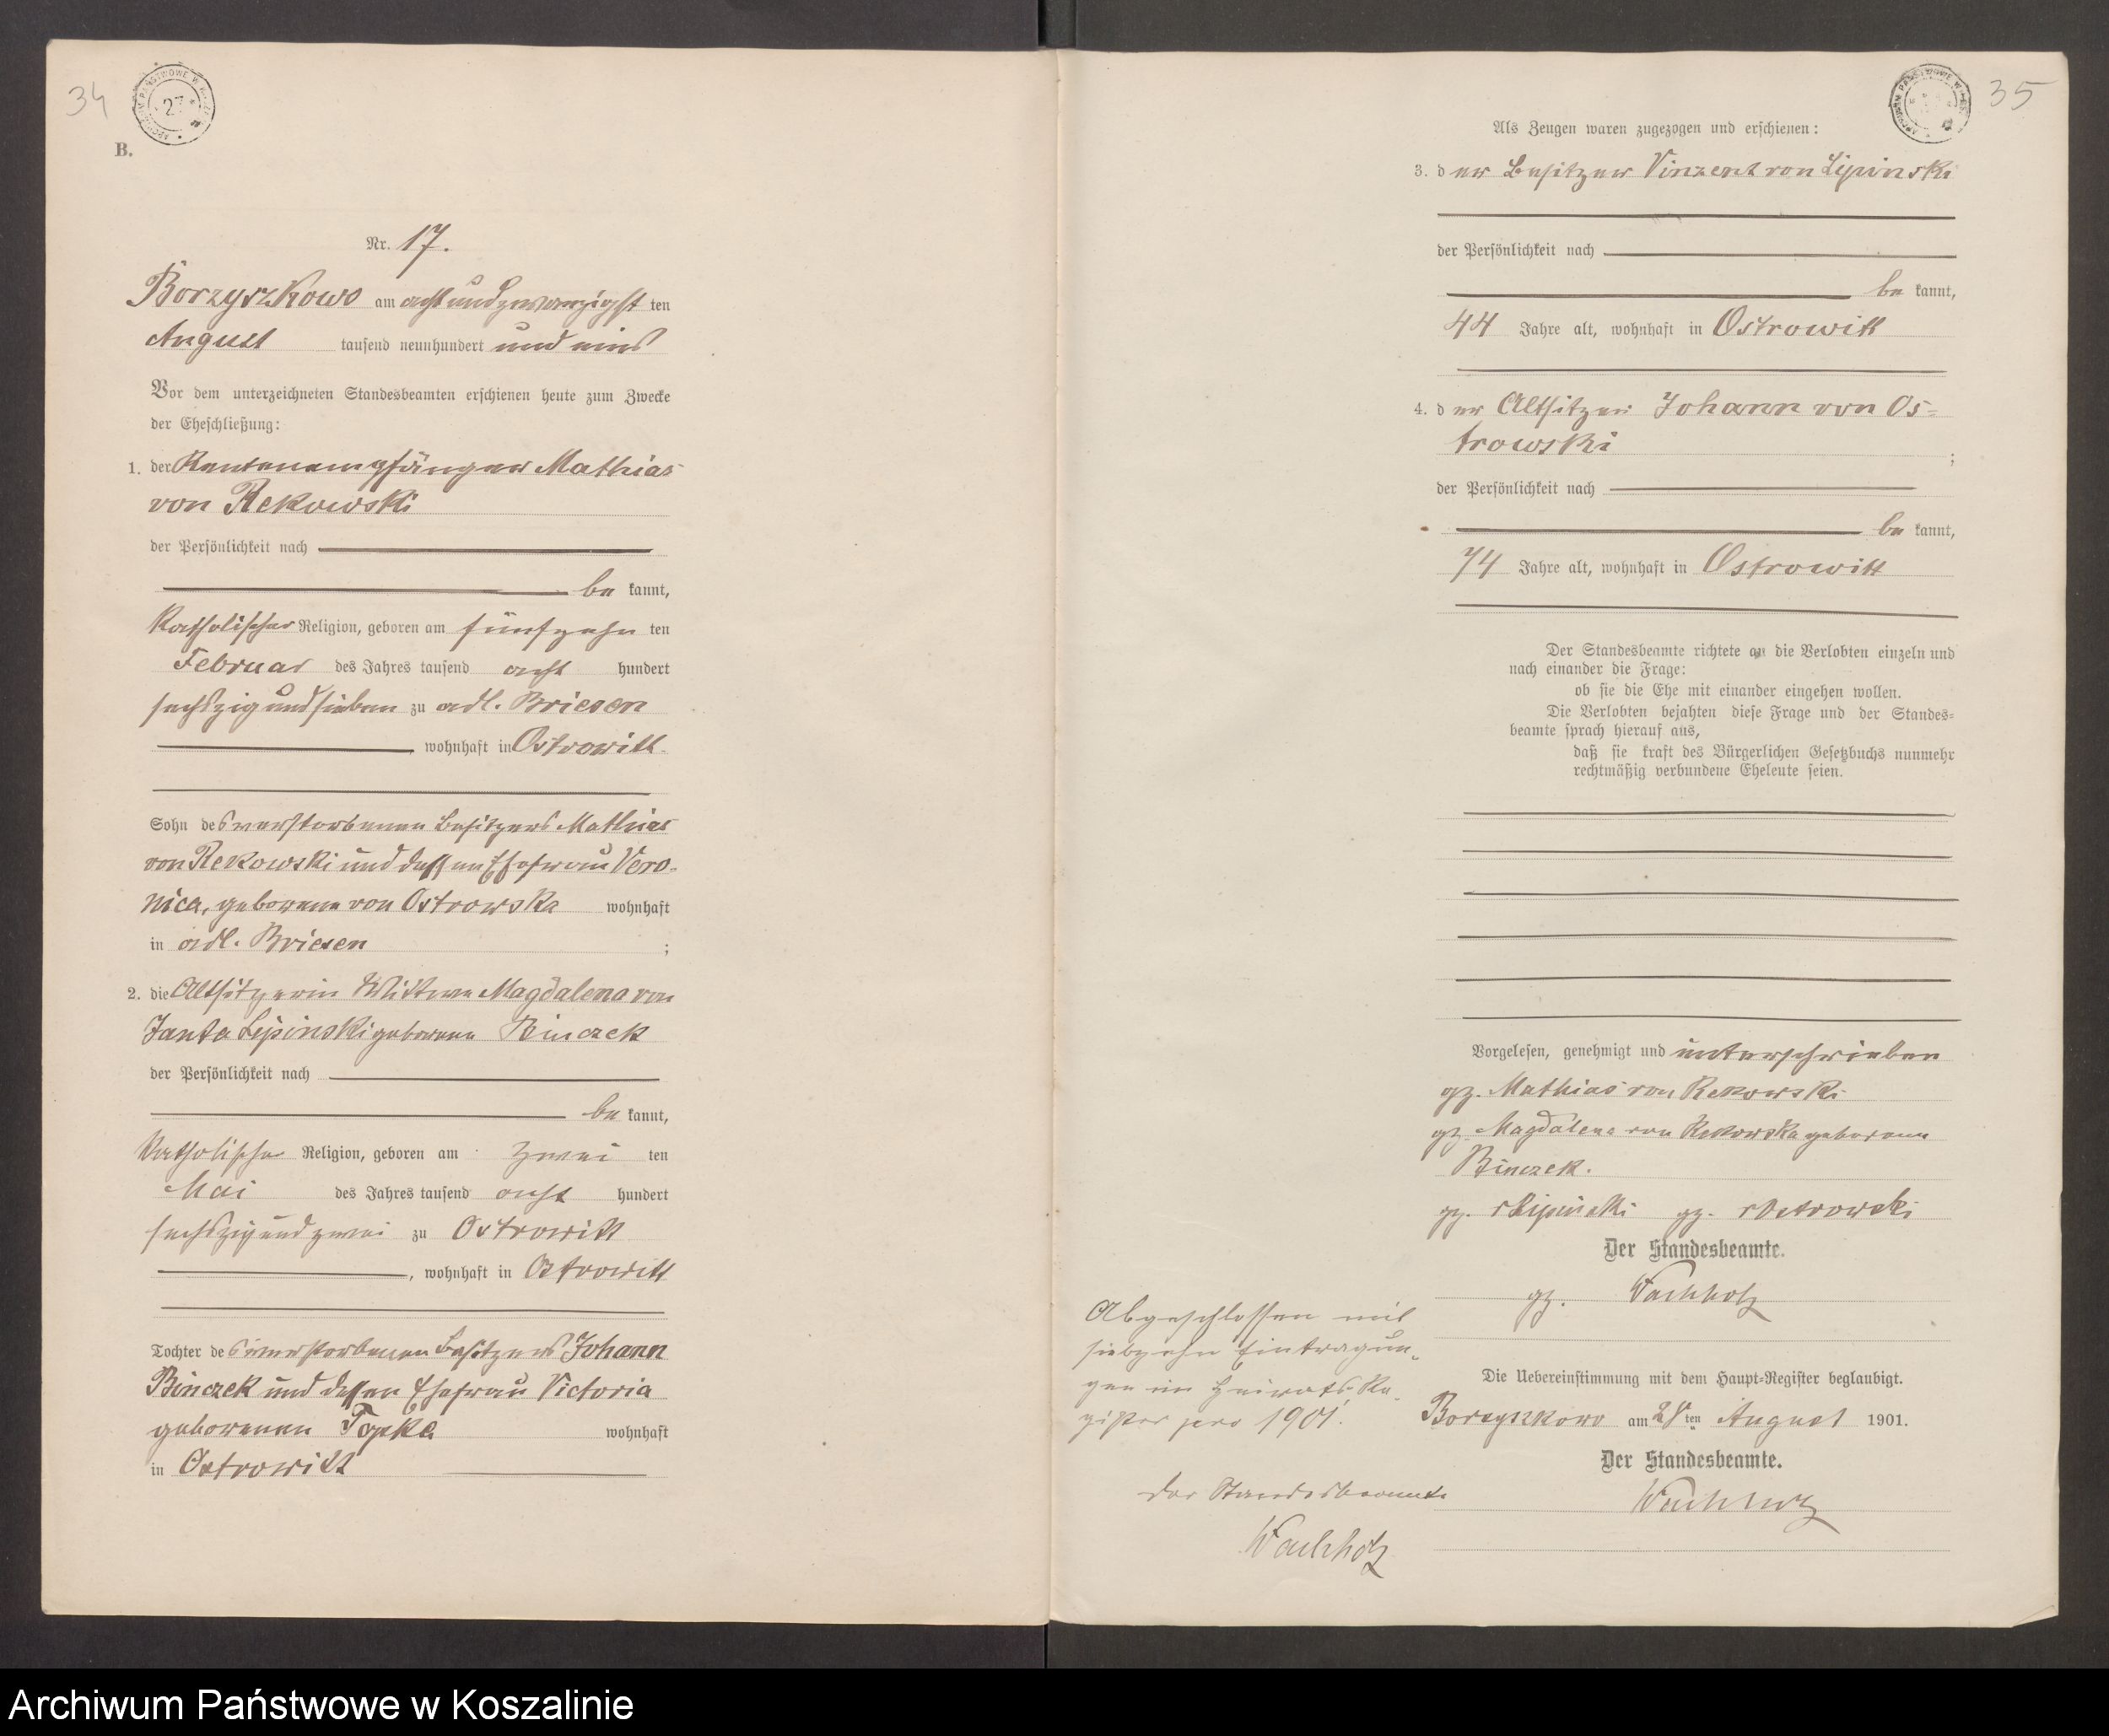 34
27
B.
Nr. 17.
Borzyszkowo am achtundzwanzigsten
August tausend neunhundert und eins
Vor dem unterzeichneten Standesbeamten erschienen heute zum Zwecke
der Eheschließung:
1. der Rentenempfänger Mathias
von Rekowski
der Persönlichkeit nach
be kannt,
Katholischer Religion, geboren am fünfzehn ten
Februar des Jahres tausend acht hundert
sechszig und sieben zu adl. Briesen
wohnhaft in Ostrowitt
Sohn des verstorbenen Besitzers Mathias
von Rekowski und dessen Ehefrau Vero-
nica, geborene von Ostrowska wohnhaft
in adl. Briesen ;
2. die Altsitzerin Wittwe Magdalena von
Janta Lipinski geborene Binczek
der Persönlichkeit nach
be kannt,
Katholische Religion, geboren am zwei ten
Mai des Jahres tausend acht hundert
sechszig und zwei zu Ostrowitt
, wohnhaft in Ostrowitt
Tochter des verstorbenen Besitzers Johann
Binczek und dessen Ehefrau Victoria
geborenen wohnhaft
in Ostrowitt
35
Als Zeugen waren zugezogen und erschienen:
3. der Besitzer Vinzent von Lipinski
der Persönlichkeit nach
be kannt,
44 Jahre alt, wohnhaft in Ostrowitt
4. der Altsitzer Johann von Os-
trowski ;
der Persönlichkeit nach
be kannt,
74 Jahre alt, wohnhaft in Ostrowitt
Der Standesbeamte richtete an die Verlobten einzeln und
nach einander die Frage:
ob sie die Ehe mit einander eingehen wollen.
Die Verlobten bejahten diese Frage und der Standes-
beamte sprach hierauf aus,
daß sie kraft des Bürgerlichen Gesetzbuchs nunmehr
rechtmäßig verbundene Eheleute seien.
Vorgelesen, genehmigt und unterschrieben
gz. Mathias von Rekowski
gz. Magdalena von Rekowska geborene
Binczek.
gz. v Lipinski gz. v Ostrowski
Der Standesbeamte.
gz. Wachholz
Die Uebereinstimmung mit dem Haupt-Register beglaubigt.
Borzyszkowo am 28ten August 1901.
Der Standesbeamte.
Wachholz
Abgeschlossen mit
siebzehn Eintragun-
gen im Heirats-Re-
gister pro 1901.
Der Standesbeamte
Wachholz
Archiwum Państwowe w Koszalinie